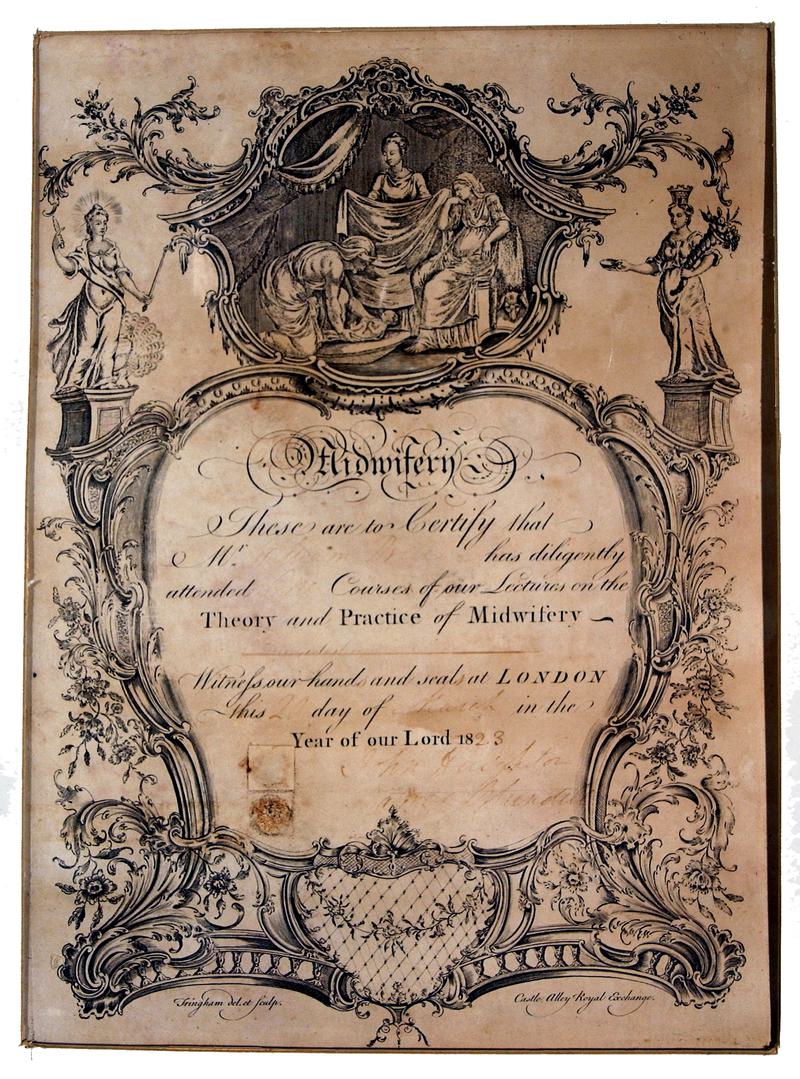 Midwifery
These are to Certify that
Mr. has diligently
attended Courses of our Lectures on the
Theory and Practice of Midwifery
Witness our hands and seals at LONDON
this day of March in the
Year of our Lord 1823
Fringham del. et sculp.
Castle Alley Royal Exchange.